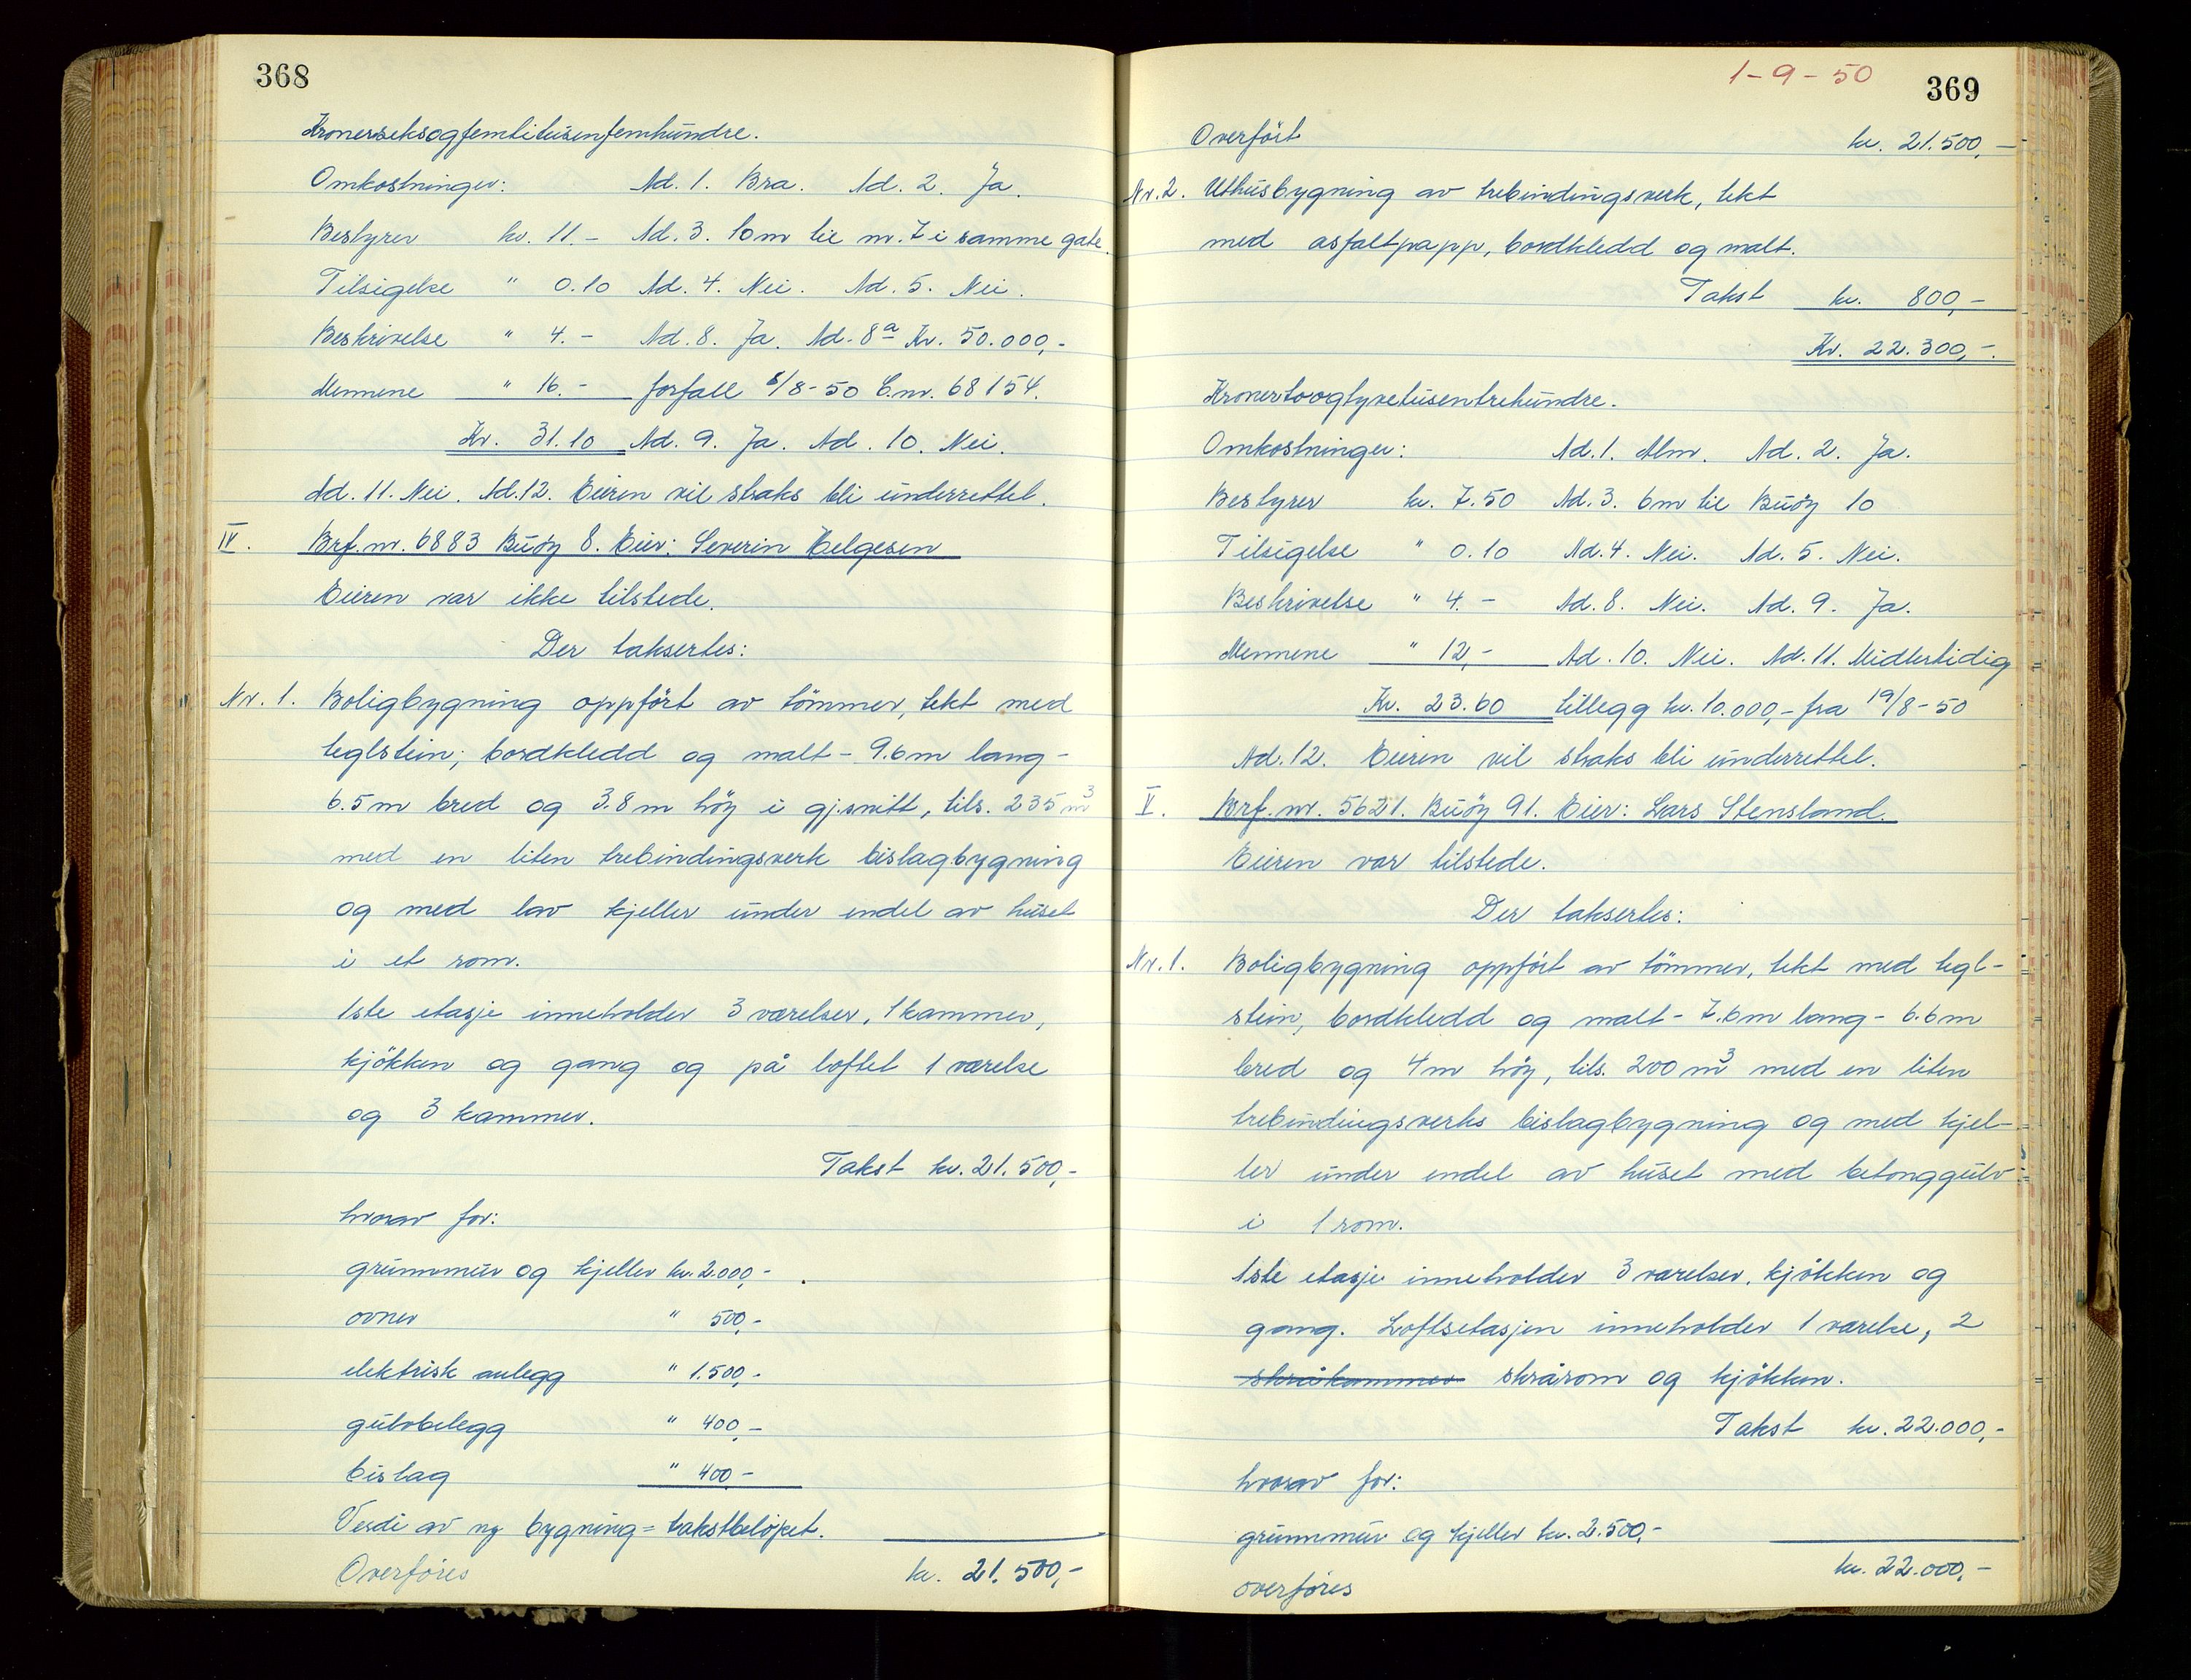 368
Kronerseksogfemtitusenfemhundre.
Omkostninger: Ad. 1. Bra. Ad. 2. Ja.
Bestyrer kr. 11.- Ad. 3. 10m til nr. 7 i samme gate.
Tilsigelse " 0.10 Ad. 4. Nei. Ad. 5. Nei.
Beskrivelse " 4.- Ad. 8. Ja. Ad. 8a Kr. 50.000,-
Mennene " 16.- forfall 8/8-50 C.nr. 68154.
Kr. 31.10 Ad. 9. Ja. Ad. 10. Nei.
Ad. 11. Nei. Ad. 12. Eieren vil straks bli underrettet.
IV. Brf. nr. 6883 Buöy 8. Eier: Severin Helgesen
Eieren var ikke tilstede.
Der taksertes:
Nr. 1. Boligbygning oppfört av tömmer, tekt med
teglstein, bordkledd og malt - 9.6m lang -
6.5m bred og 3.8m höy i gj.snitt, tils. 235 m³
med en liten trebindingsverk bislagbygning
og med lav kjeller under endel av huset
i et rom.
1ste etasje inneholder 3 værelser, 1 kammer,
kjökken og gang og på loftet 1 værelse
og 3 kammer.
Takst kr. 21.500,-
hvorav for:
grunnmur og kjeller kr. 2.000,-
ovner " 500,-
elektrisk anlegg " 1.500,-
gulvbelegg " 400,-
bislag " 400,-
Verdi av ny bygning = takstbelöpet.
Overföres kr. 21.500,-
1-9-50
369
Overfört kr. 21.500,-
Nr. 2. Uthusbygning av trebindingsverk, tekt
med asfaltpapp, bordkledd og malt.
Takst kr. 800,-
Kr. 22.300,-.
Kronertoogtyvetusentrehundre.
Omkostninger: Ad. 1. Alm. Ad. 2. Ja.
Bestyrer kr. 7.50 Ad. 3. 6m til Buöy 10
Tilsigelse " 0.10 Ad. 4. Nei. Ad. 5. Nei.
Beskrivelse " 4.- Ad. 8. Nei. Ad. 9. Ja.
Mennene " 12,- Ad. 10. Nei. Ad. 11. Midlertidig
Kr. 23.60 tillegg kr. 10.000,- fra 19/8-50
Ad. 12. Eieren vil straks bli underrettet.
V. Brf. nr. 5621. Buöy 91. Eier: Lars Stensland.
Eieren var tilstede.
Der taksertes:
Nr. 1. Boligbygning oppfört av tömmer, tekt med tegl-
stein, bordkledd og malt - 7.6m lang - 6.6m
bred og 4m höy, tils. 200 m³ med en liten
trebindingsverks bislagbygning og med kjel-
ler under endel av huset med betonggulv
i 1 rom.
1ste etasje inneholder 3 værelser, kjökken og
gang. Loftsetasjen inneholder 1 værelse, 2
skråkammer skrårom og kjökken.
Takst kr. 22.000,-
hvorav for:
grunnmur og kjeller kr. 2.500,-
overföres kr. 22.000,-